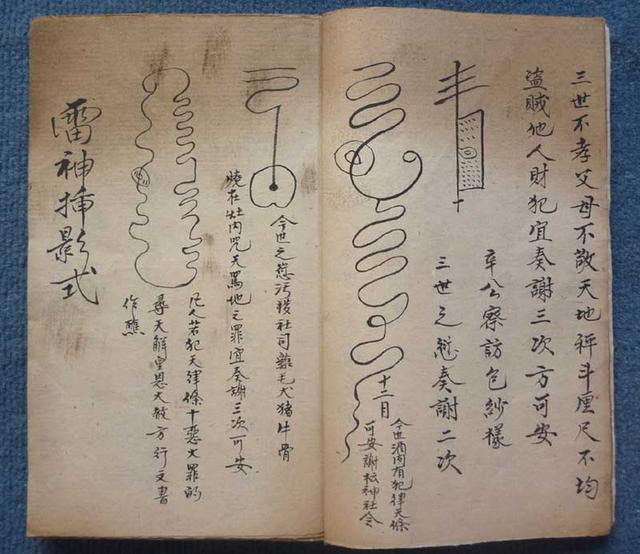 三世不孝父母不敬天地秤斗厘尺不均
盗贼他人財犯宜奏謝三次方可安
辛公察訪包紗樣
三世之愆奏謝二次
十二月
今世酒肉有犯律天條
可安謝 神社令
今世之愆污穢社司 毛犬猪牛骨
燒在灶内咒天罵地之罪宜奏謝三次可安
凡人若犯天律條十惡大罪的
尋天解 恩大赦方行文書
作醮
雷神 影式